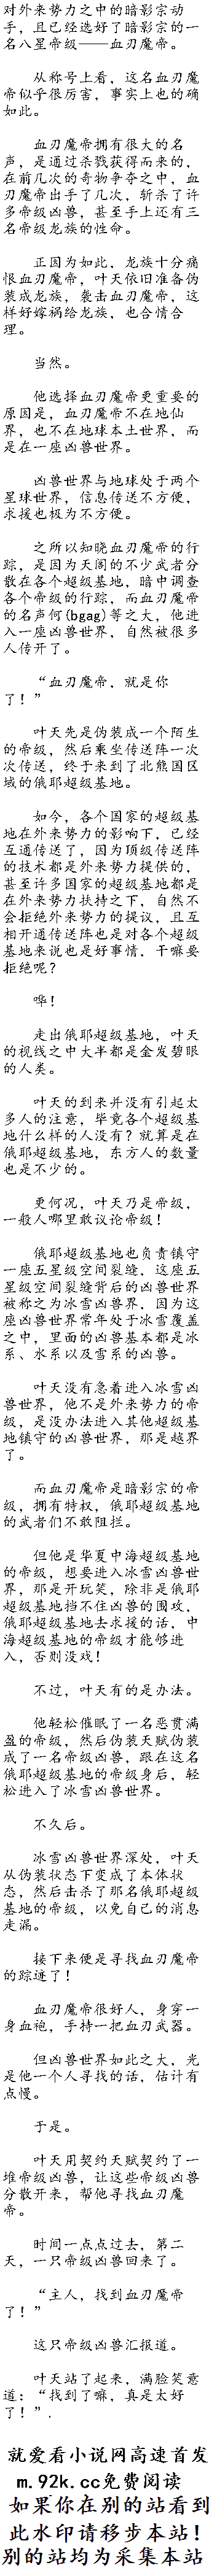 对外来势力之中的暗影宗动
手，且已经选好了暗影宗的一
名八星帝级——血刃魔帝。
从称号上看，这名血刃魔
帝似乎很厉害，事实上也的确
如此。
血刃魔帝拥有很大的名
声，是通过杀戮获得而来的，
在前几次的奇物争夺之中，血
刃魔帝出手了几次，斩杀了许
多帝级凶兽，甚至手上还有三
名帝级龙族的性命。
正因为如此，龙族十分痛
恨血刃魔帝，叶天依旧准备伪
装成龙族，袭击血刃魔帝，这
样好嫁祸给龙族，也合情合
理。
当然。
他选择血刃魔帝更重要的
原因是，血刃魔帝不在地仙
界，也不在地球本土世界，而
是在一座凶兽世界。
凶兽世界与地球处于两个
星球世界，信息传送不方便，
求援也极为不方便。
之所以知晓血刃魔帝的行
踪，是因为天阁的不少武者分
散在各个超级基地，暗中调查
各个帝级的行踪，而血刃魔帝
的名声何(bgag)等之大，他进
入一座凶兽世界，自然被很多
人传开了。
“血刃魔帝，就是你
了！”
叶天先是伪装成一个陌生
的帝级，然后乘坐传送阵一次
次传送，终于来到了北熊国区
域的俄耶超级基地。
如今，各个国家的超级基
地在外来势力的影响下，已经
互通传送了，因为顶级传送阵
的技术都是外来势力提供的，
甚至许多国家的超级基地都是
在外来势力扶持之下，自然不
会拒绝外来势力的提议，且互
相开通传送阵也是对各个超级
基地来说也是好事情，干嘛要
拒绝呢？
哗！
走出俄耶超级基地，叶天
的视线之中大半都是金发碧眼
的人类。
叶天的到来并没有引起太
多人的注意，毕竟各个超级基
地什么样的人没有？就算是在
俄耶超级基地，东方人的数量
也是不少的。
更何况，叶天乃是帝级，
一般人哪里敢议论帝级！
俄耶超级基地也负责镇守
一座五星级空间裂缝，这座五
星级空间裂缝背后的凶兽世界
被称之为冰雪凶兽界，因为这
座凶兽世界常年处于冰雪覆盖
之中，里面的凶兽基本都是冰
系、水系以及雪系的凶兽。
叶天没有急着进入冰雪凶
兽世界，他不是外来势力的帝
级，是没办法进入其他超级基
地镇守的凶兽世界，那是越界
了。
而血刃魔帝是暗影宗的帝
级，拥有特权，俄耶超级基地
的武者们不敢阻拦。
但他是华夏中海超级基地
的帝级，想要进入冰雪凶兽世
界，那是开玩笑，除非是俄耶
超级基地挡不住凶兽的围攻，
俄耶超级基地去求援的话，中
海超级基地的帝级才能够进
入，否则没戏！
不过，叶天有的是办法。
他轻松催眠了一名恶贯满
盈的帝级，然后伪装天赋伪装
成了一名帝级凶兽，跟在这名
俄耶超级基地的帝级身后，轻
松进入了冰雪凶兽世界。
不久后。
冰雪凶兽世界深处，叶天
从伪装状态下变成了本体状
态，然后击杀了那名俄耶超级
基地的帝级，以免自己的消息
走漏。
接下来便是寻找血刃魔帝
的踪迹了！
血刃魔帝很好人，身穿一
身血袍，手持一把血刃武器。
但凶兽世界如此之大，光
是他一个人寻找的话，估计有
点慢。
于是。
叶天用契约天赋契约了一
堆帝级凶兽，让这些帝级凶兽
分散开来，帮他寻找血刃魔
帝。
时间一点点过去，第二
天，一只帝级凶兽回来了。
“主人，找到血刃魔帝
了！”
这只帝级凶兽汇报道。
叶天站了起来，满脸笑意
道：“找到了嘛，真是太好
了！”.
就爱看小说网高速首发
m.92k.cc免费阅读
如果你在别的站看到
此水印请移步本站！
别的站均为采集本站